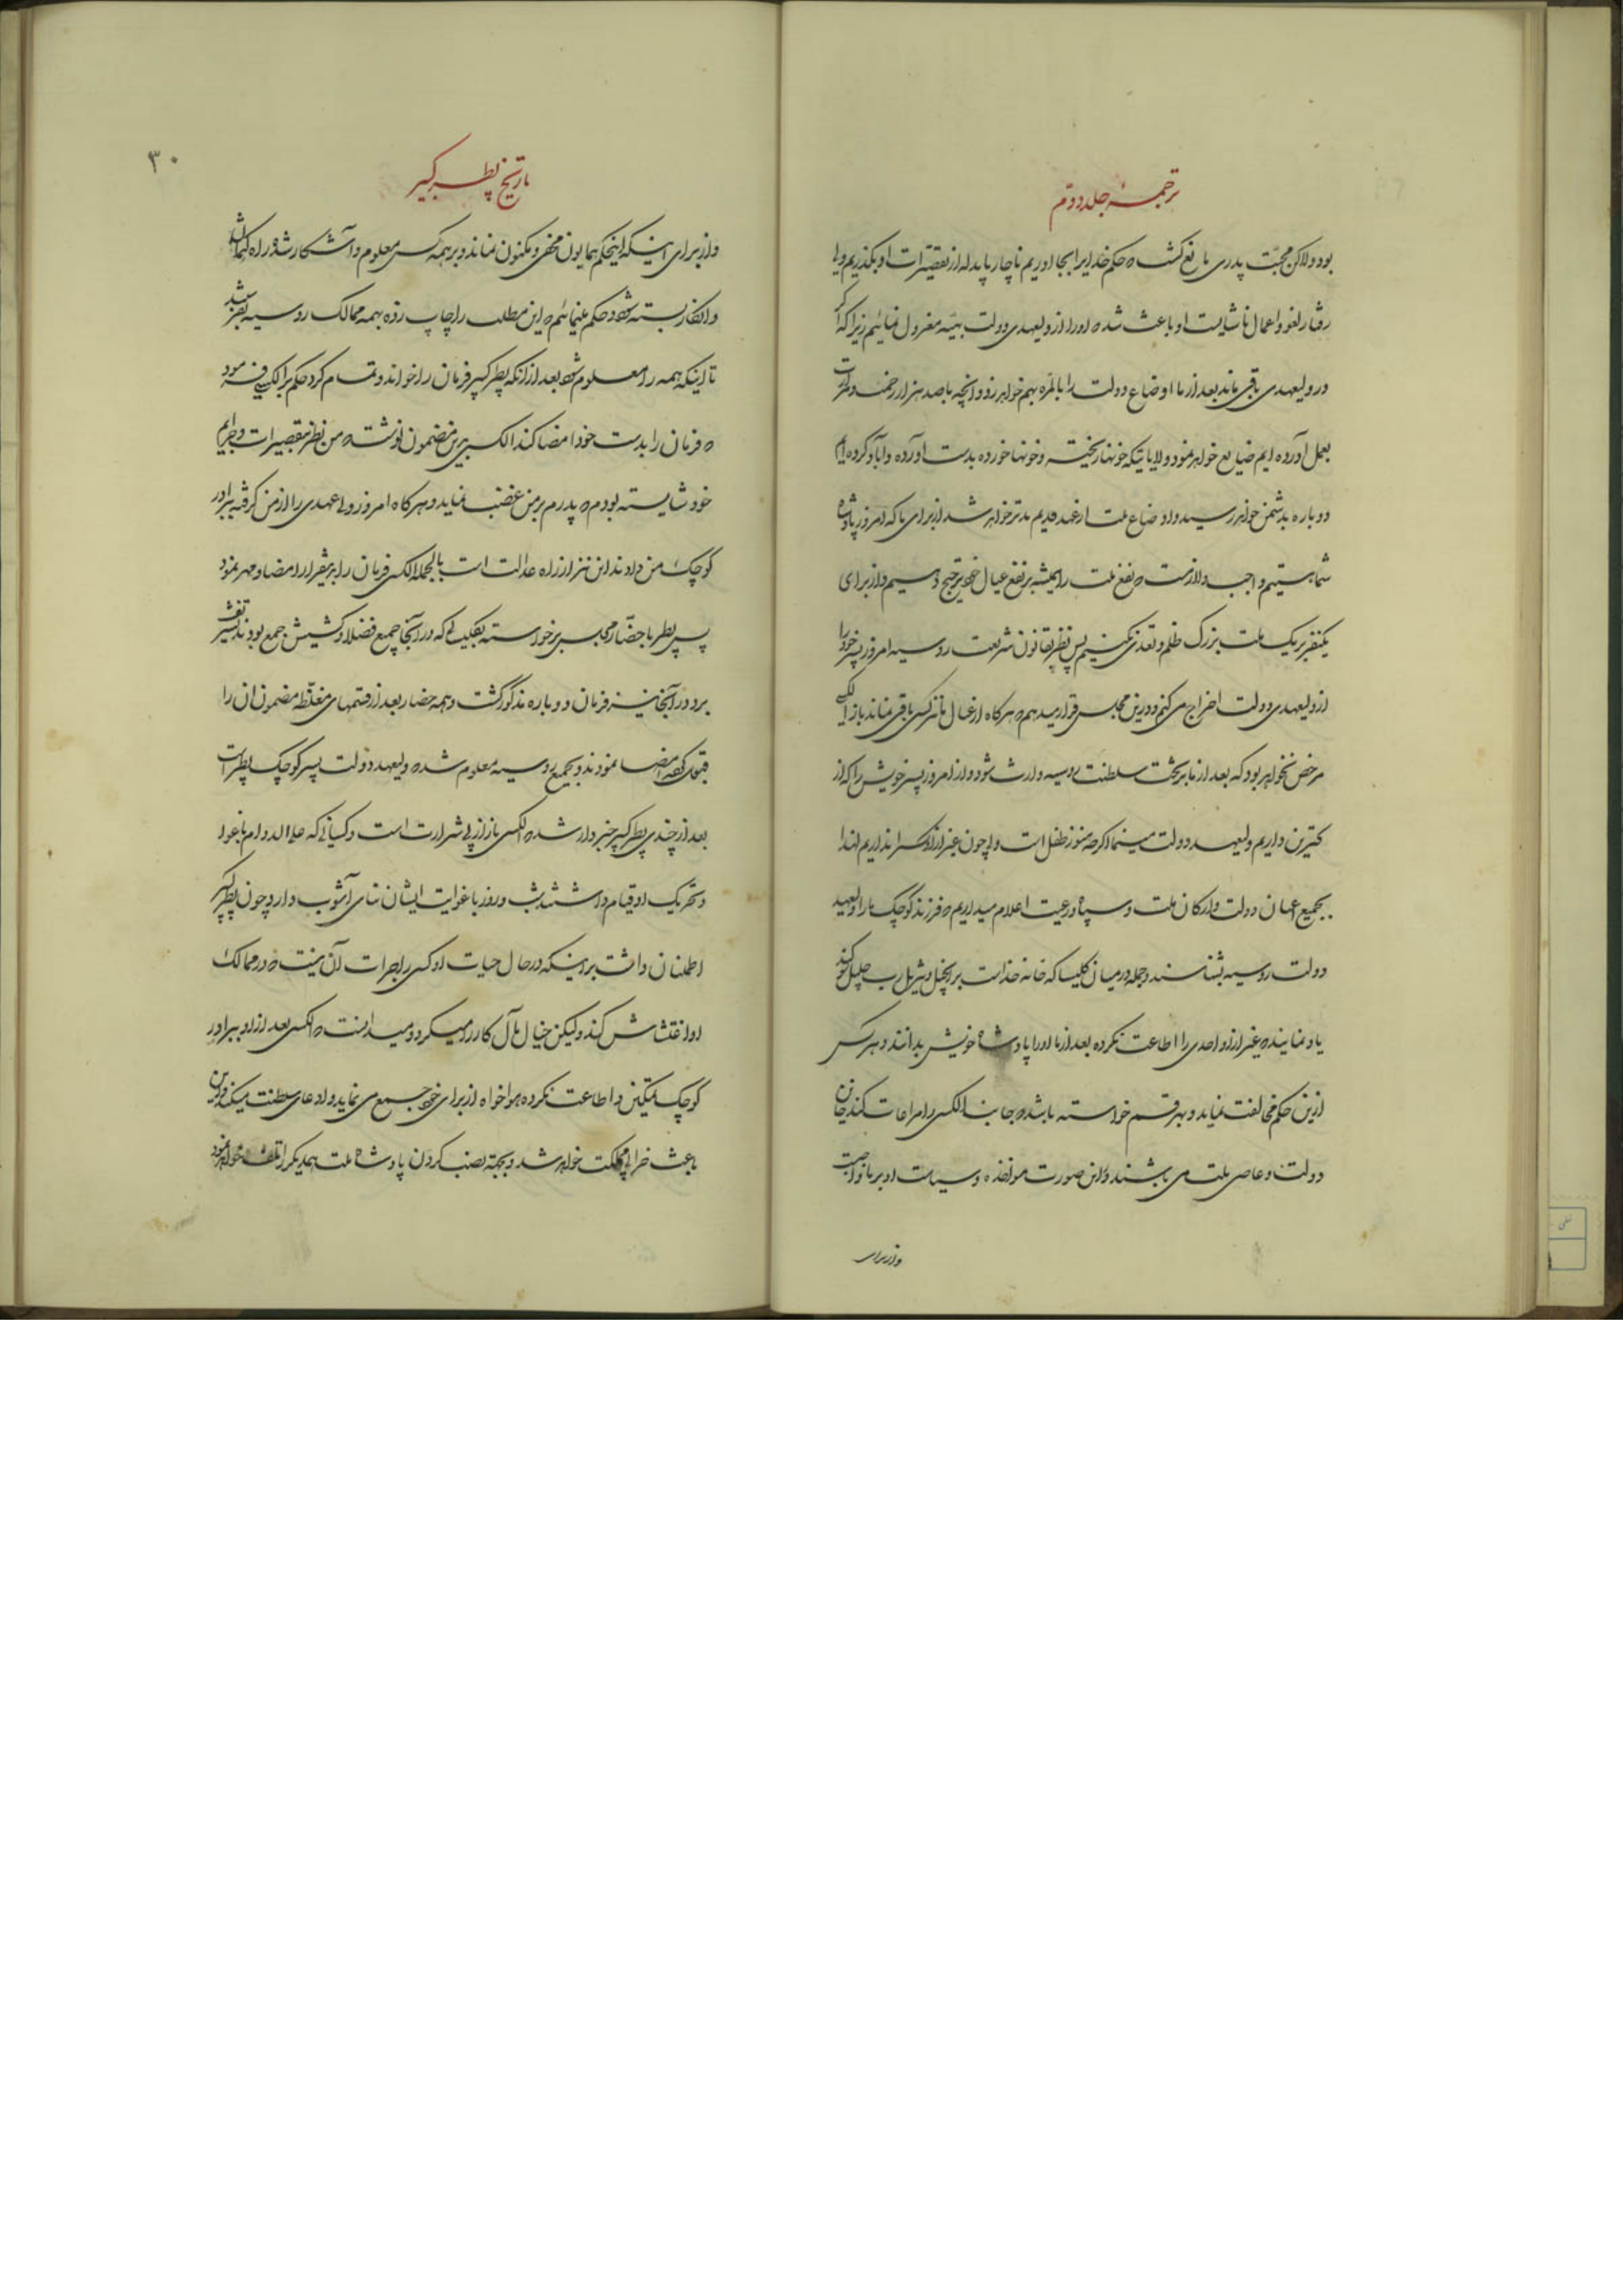 ترجمهٔ جلد دوّم
بود ولاکن محبّت پدری مانع گشت که حکم خدا را بجا اوریم ناچار باید له از تقصیرات او بگذریم ولی
رفتار لغو و اعمال ناشایست او باعث شده اورا از ولیعهدی دولت بهیّه معزول نمائیم زیرا که اگر
در ولیعهدی باقی ماند بعد از ما اوضاع دولت را بالمرّه بهم خواهد زد و انچه با صد هزار زحمت و
بعمل آورده ایم ضایع خواهد نمود و ولایاتیکه خونها ریخته و خونها خورده بدست آورده و آباد کرده ایم
دوباره بدشمن خواهد رسید و اوضاع ملت از عهد قدیم بدتر خواهد شد از برای ما که امروز پادشاه
شما هستیم واجب و لازمست که نفع ملت را همیشه بر نفع عیال خود ترجیح دهیم و از برای
یکنفر بر یک ملت بزرک ظلم و تعدّی نکنیم پس نظر بقانون شریعت روسیه امروز پسر خود را
از ولیعهدی دولت اخراج می کنم و در این مجلس قرار میدهم که هر کاه از عیال ما کسی باقی نماند باز الکسی
مرخص نخواهد بود که بعد از ما بر تخت سلطنت روسیه وارث شود و از امروز پسر خویش را که از
کترین داریم ولیعهد دولت مینمائیم اگرچه هنوز طفل است ولی چون غیر از او پسر نداریم لهذا
بجمیع اعیان دولت و ارکان ملت و سپاه و رعیت اعلام میداریم که فرزند کوچک ما را ولیعهد
دولت روسیه بشناسند و جمله در میان کلیسا که خانه خداست بر انجیل رب جلیل سوکند
یاد نمایند که غیر از او احدی را اطاعت نکرده بعد از ما اورا پادشاه خویش بدانند و هر کس
ازین حکم مخالفت نماید و بهر قسم خواسته باشد که جانب الکسی را مراعات کند خائن
دولت و عاصی ملت می باشند و در این صورت مؤاخذه و سیاست او بر ما واجبست
واز برای
تاریخ پطر کبیر
۳۰
واز برای اینکه اینحکم همایون مخفی و مکنون نماند و بر همه کس معلوم و آشکار شود راه کتمان
و انکار بسته شود حکم مینمائیم که این مطلب را چاپ زده بهمه ممالک روسیه بفرستند
تا اینکه همه را معلوم شود بعد از انکه پطر کبیر فرمان را خواند و تمام کرد حکم بر الکسی فرمود
که فرمان را بدست خود امضا کند الکسی برین مضمون نوشت که من نظر بتقصیرات و جرایم
خود شایسته بودم که پدرم بر من غضب نماید و هر کاه امروز ولیعهدی را از من کرفته ببرادر
کوچک من دادند این نیز از راه عدالت است بالجمله الکسی فرمان را برینقرار امضا و مهر نمود
پس پطر با حضّار مجلس برخواسته بکلیسائی که در آنجا جمیع فضلا و کشیش جمع بودند تشریف
برد در آنجا نیز فرمان دوباره مذکور گشت و همه حضار بعد از قسمهای مغلّظه مضمون ان را
قبول کرده امضا نمودند و بجمیع روسیه معلوم شد که ولیعهد دولت پسر کوچک پطر است
بعد از چندی پطر کبیر خبردار شد که الکسی باز از پی شرارت است و کسانی که علی الدوام باغوا
و تحریک او قیام داشتند شب و روز با غوایت ایشان بنای آشوب دارد و چون پطر کبیر
اطمنان داشت بر اینکه در حال حیات او کسی را جرات آن نیست که در ممالک
او اغتشاش کند ولیکن خیال مآل کار را میکرد و میدانست که الکسی بعد از او ببرادر
کوچک تمکین و اطاعت نکرده هواخواه از برای خود جمع می نماید و ادعای سلطنت میکند و این
باعث خرابی مملکت خواهد شد و بجهة نصب کردن پادشاه ملت همدیکر را تلف خواهد نمود